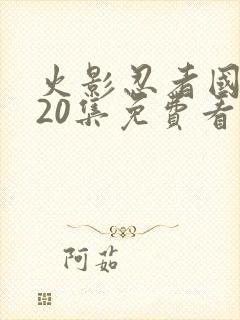 火影忍者國
20集免費看
阿茹